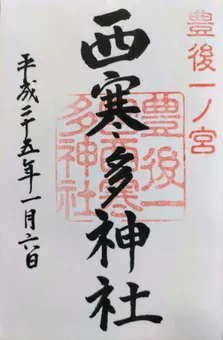 豊後一ノ宮
西寒多神社
豊後一
宮西寒
多神社
平成二十五年一月六日